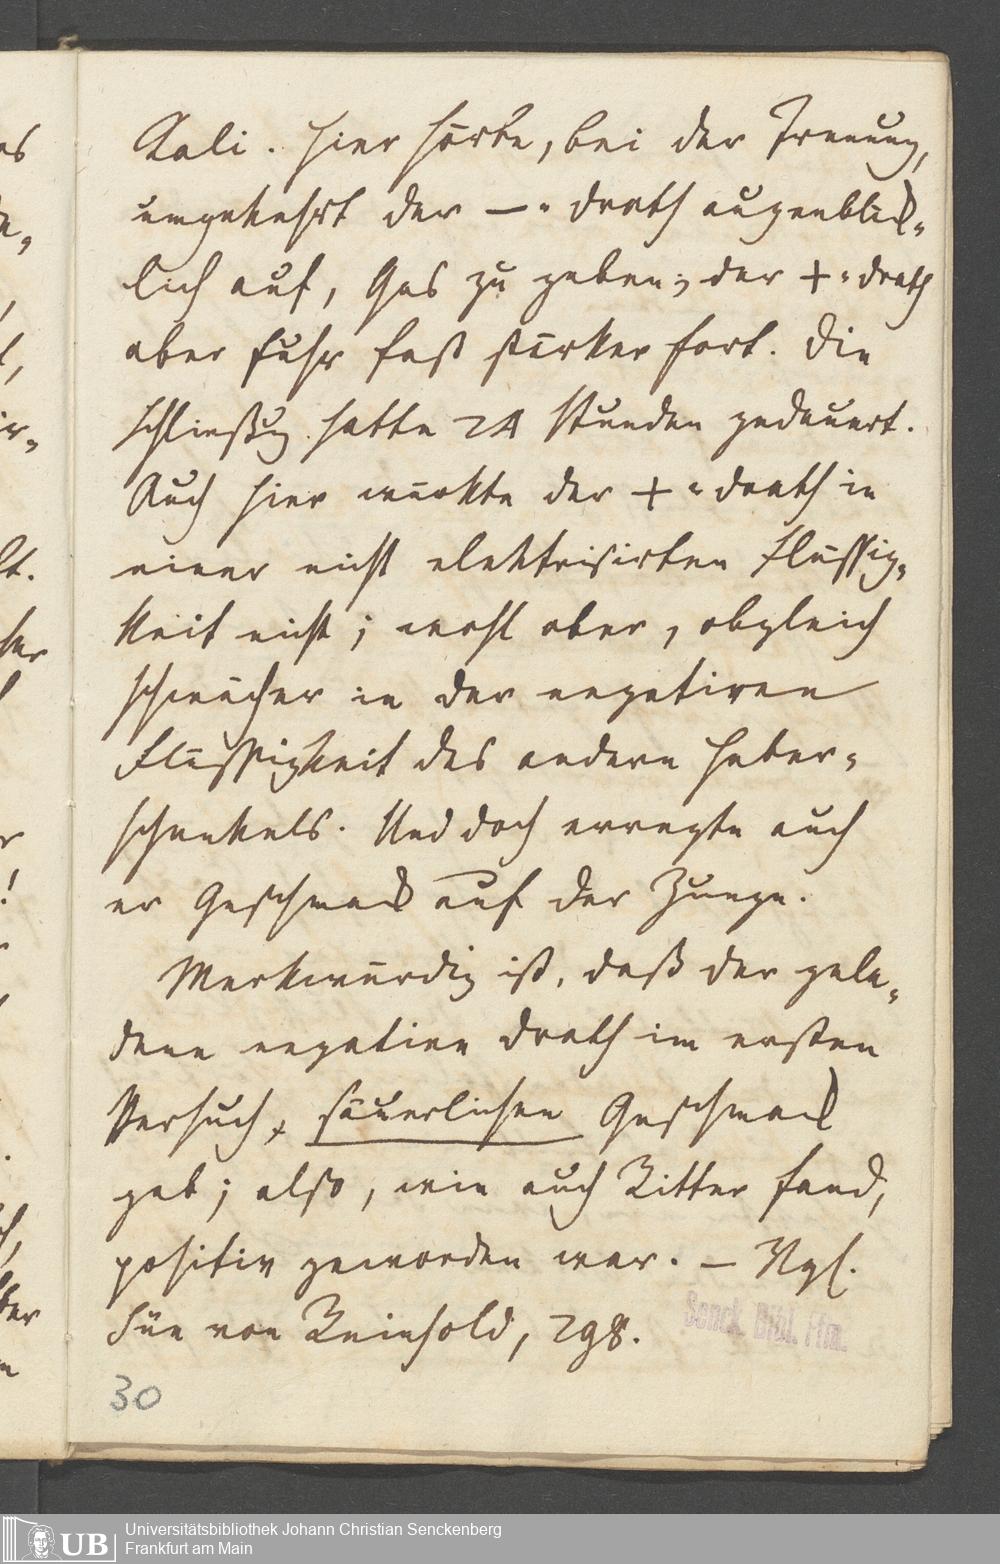 Kali. Hier hörte, bei der Trennung,
umgekehrt der —-drath augenblick-
lich auf, Gas zu geben; der +-drath
aber fuhr fast stärker fort. Die
Schließung hatte 24 Stunden gedauert.
Auch hier wirkte der +-drath in
einer nicht elektrisirten Flüssig-
keit nicht; wohl aber, obgleich
schwächer in der negativen
Flüssigkeit des andern Heber-
schenkels. Und doch erregte auch
er Geschmack auf der Zunge.
Merkwürdig ist, daß der gela-
dene negative Drath im ersten
Versuch, säuerlichen Geschmack
gab; also, wie auch Ritter fand,
positiv geworden war. — Vgl.
Süe von Reinhold, 298.
Senck. Bibl. Ffm.
30
UB
Universitätsbibliothek Johann Christian Senckenberg
Frankfurt am Main